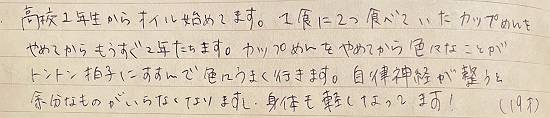 高校2年生からオイル始めてます。1食に2つ食べていたカップめんを
やめてからもうすぐ2年たちます。カップめんをやめてから色々なことが
トントン拍子にすすんで色々うまく行きます。自律神経が整うと
余分なものがいらなくなりますし、身体も軽くなってます!(19才)